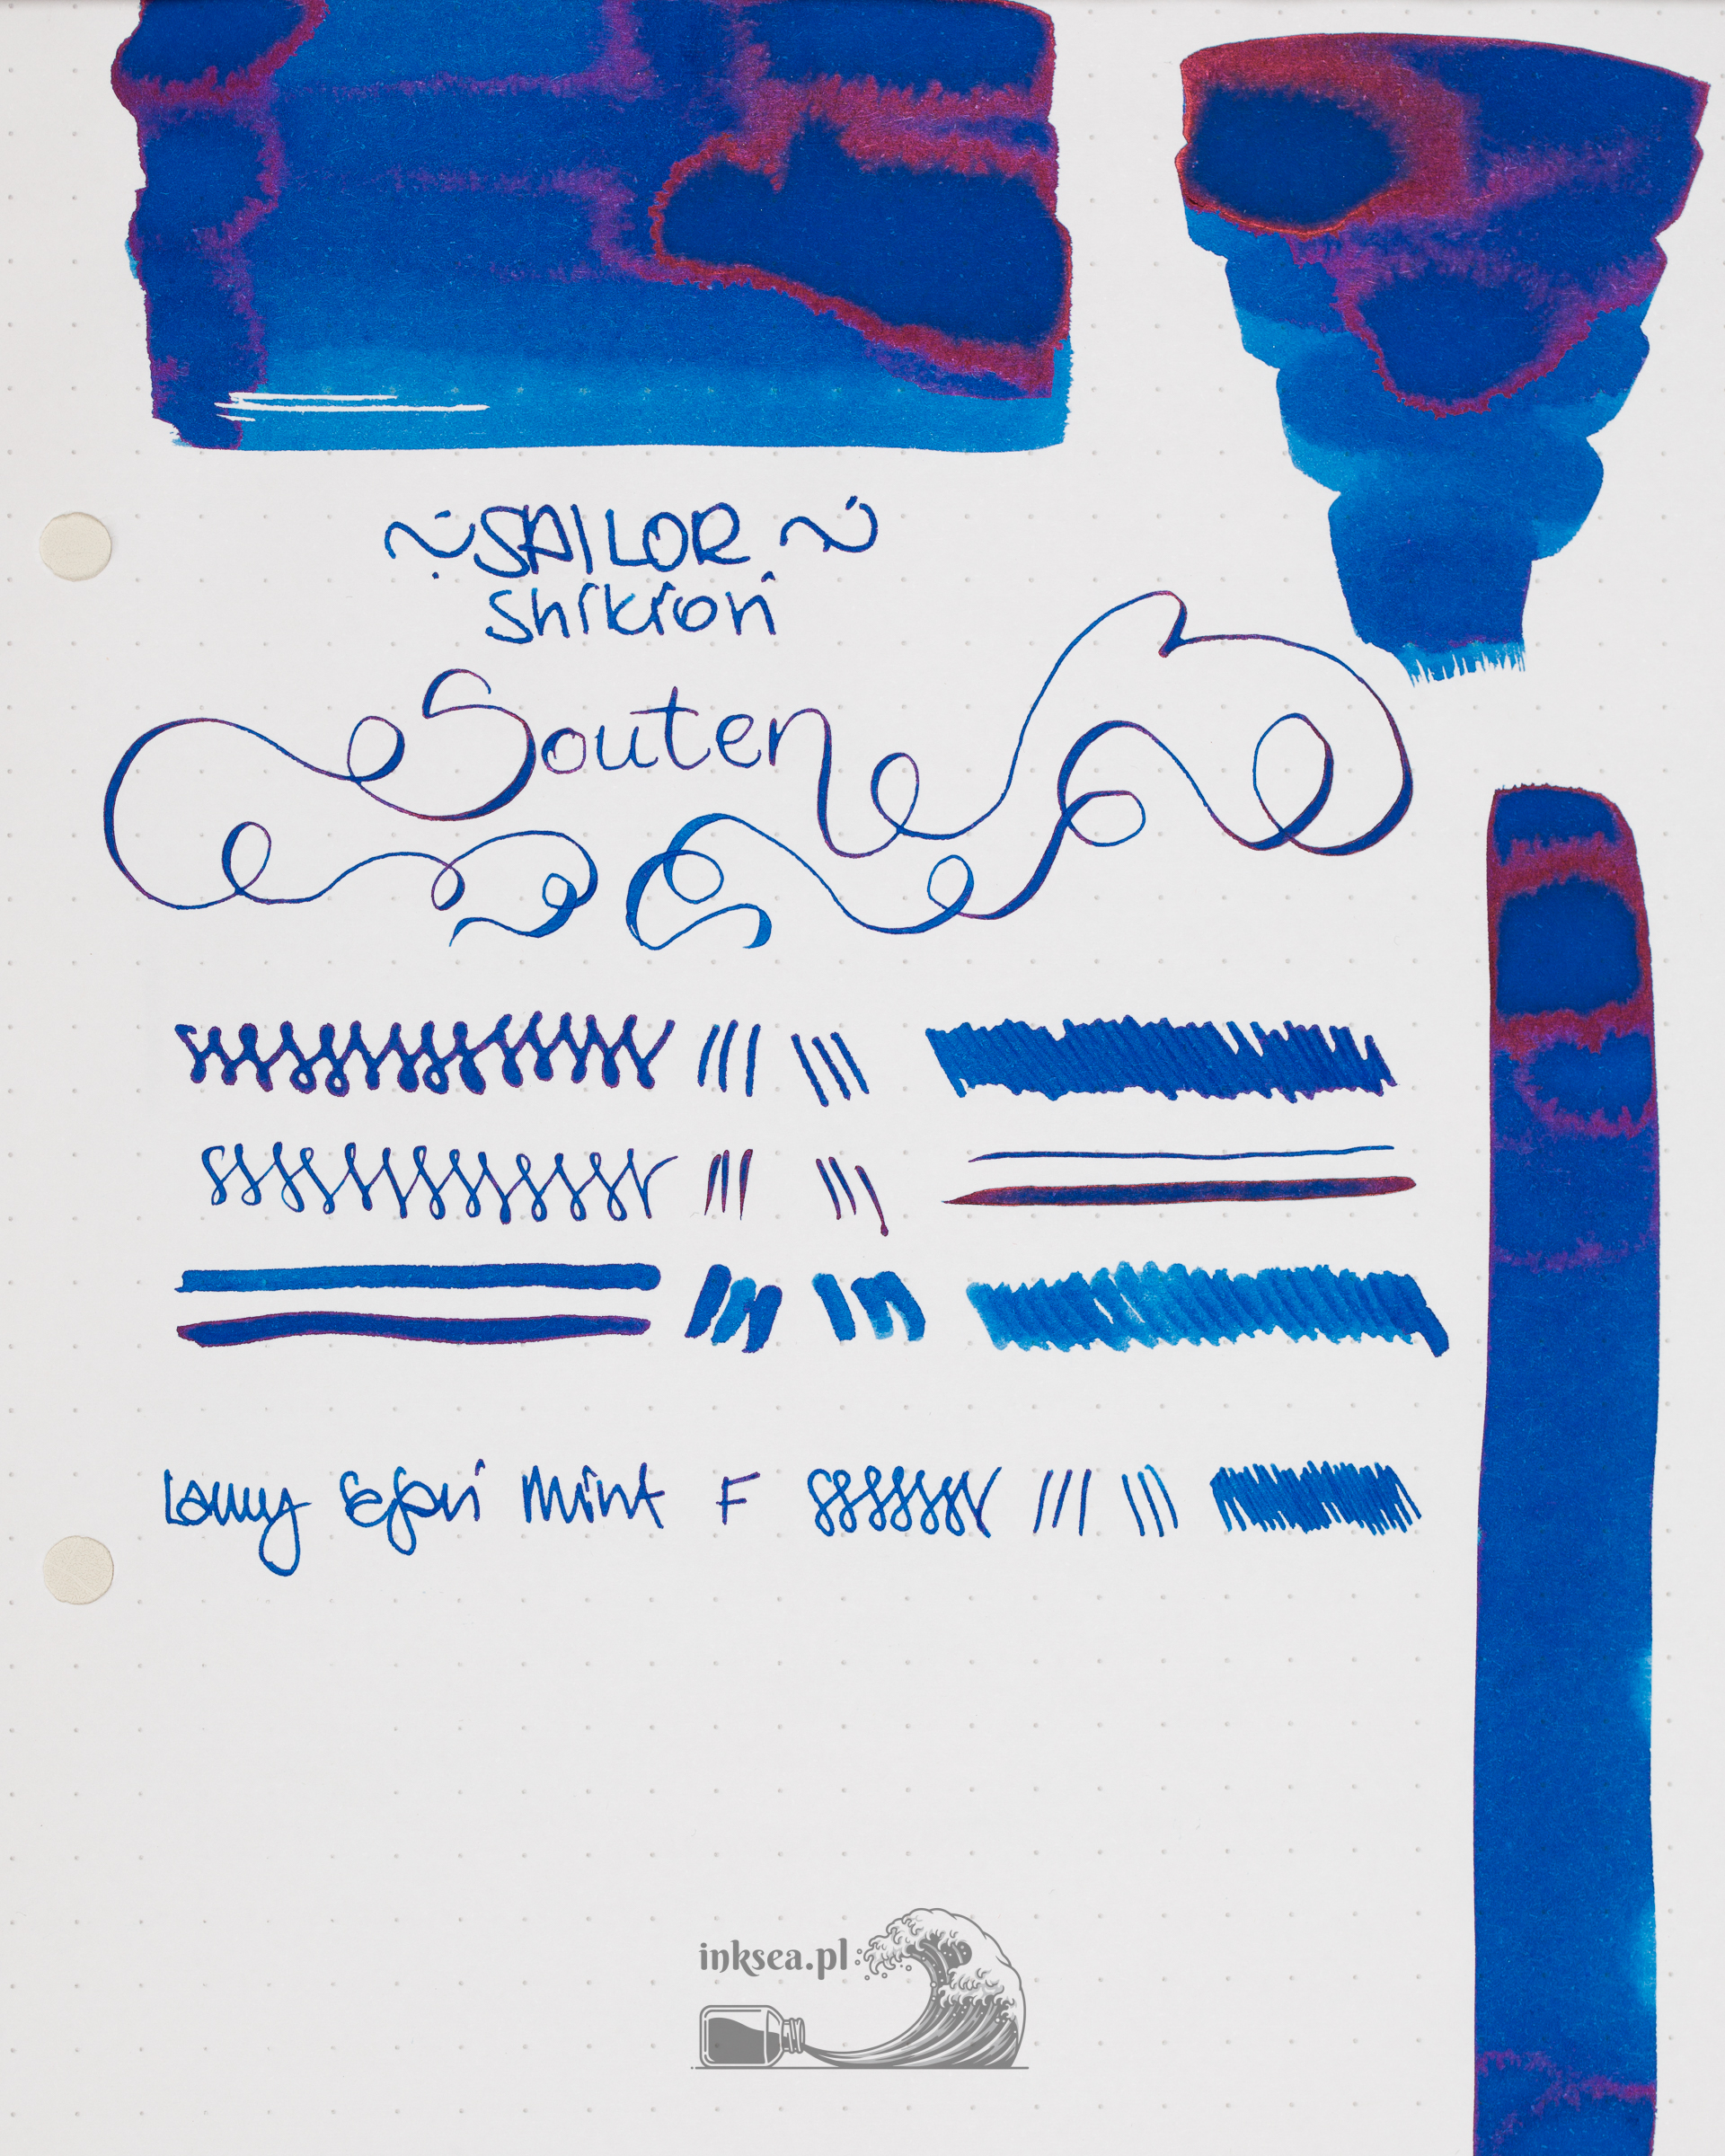 ~ SAILOR ~
Shikiori
Souten
Lamy Safari Mint F
inksea.pl